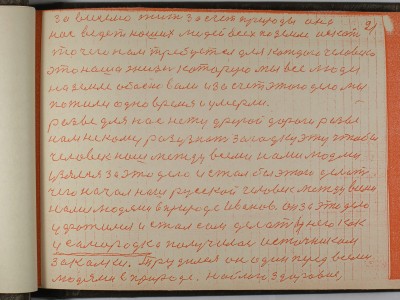 за имению жить за счет природы она
нас ведет наших людей всех на земле иметь 2)
то чего нам требуется для каждого человека
это наша жизнь которую мы все люди
на земле обоснвали и за счет этого дела мы
пожили одно время и умерли.
разве для нас нету другой дороги разве
нам некому разузнать загадку эту чтобы
человек наш между всеми нами людми
взялся за это дело и стал бы этое делать
чего начал наш русской человек между всеми
нами людями в природе Иванов. он за это дело
ухватился и стал сам делать у него как
у самородка получилос источником
закалки. Трудился он один пред всеми
людями в природе. на благо здоровия,